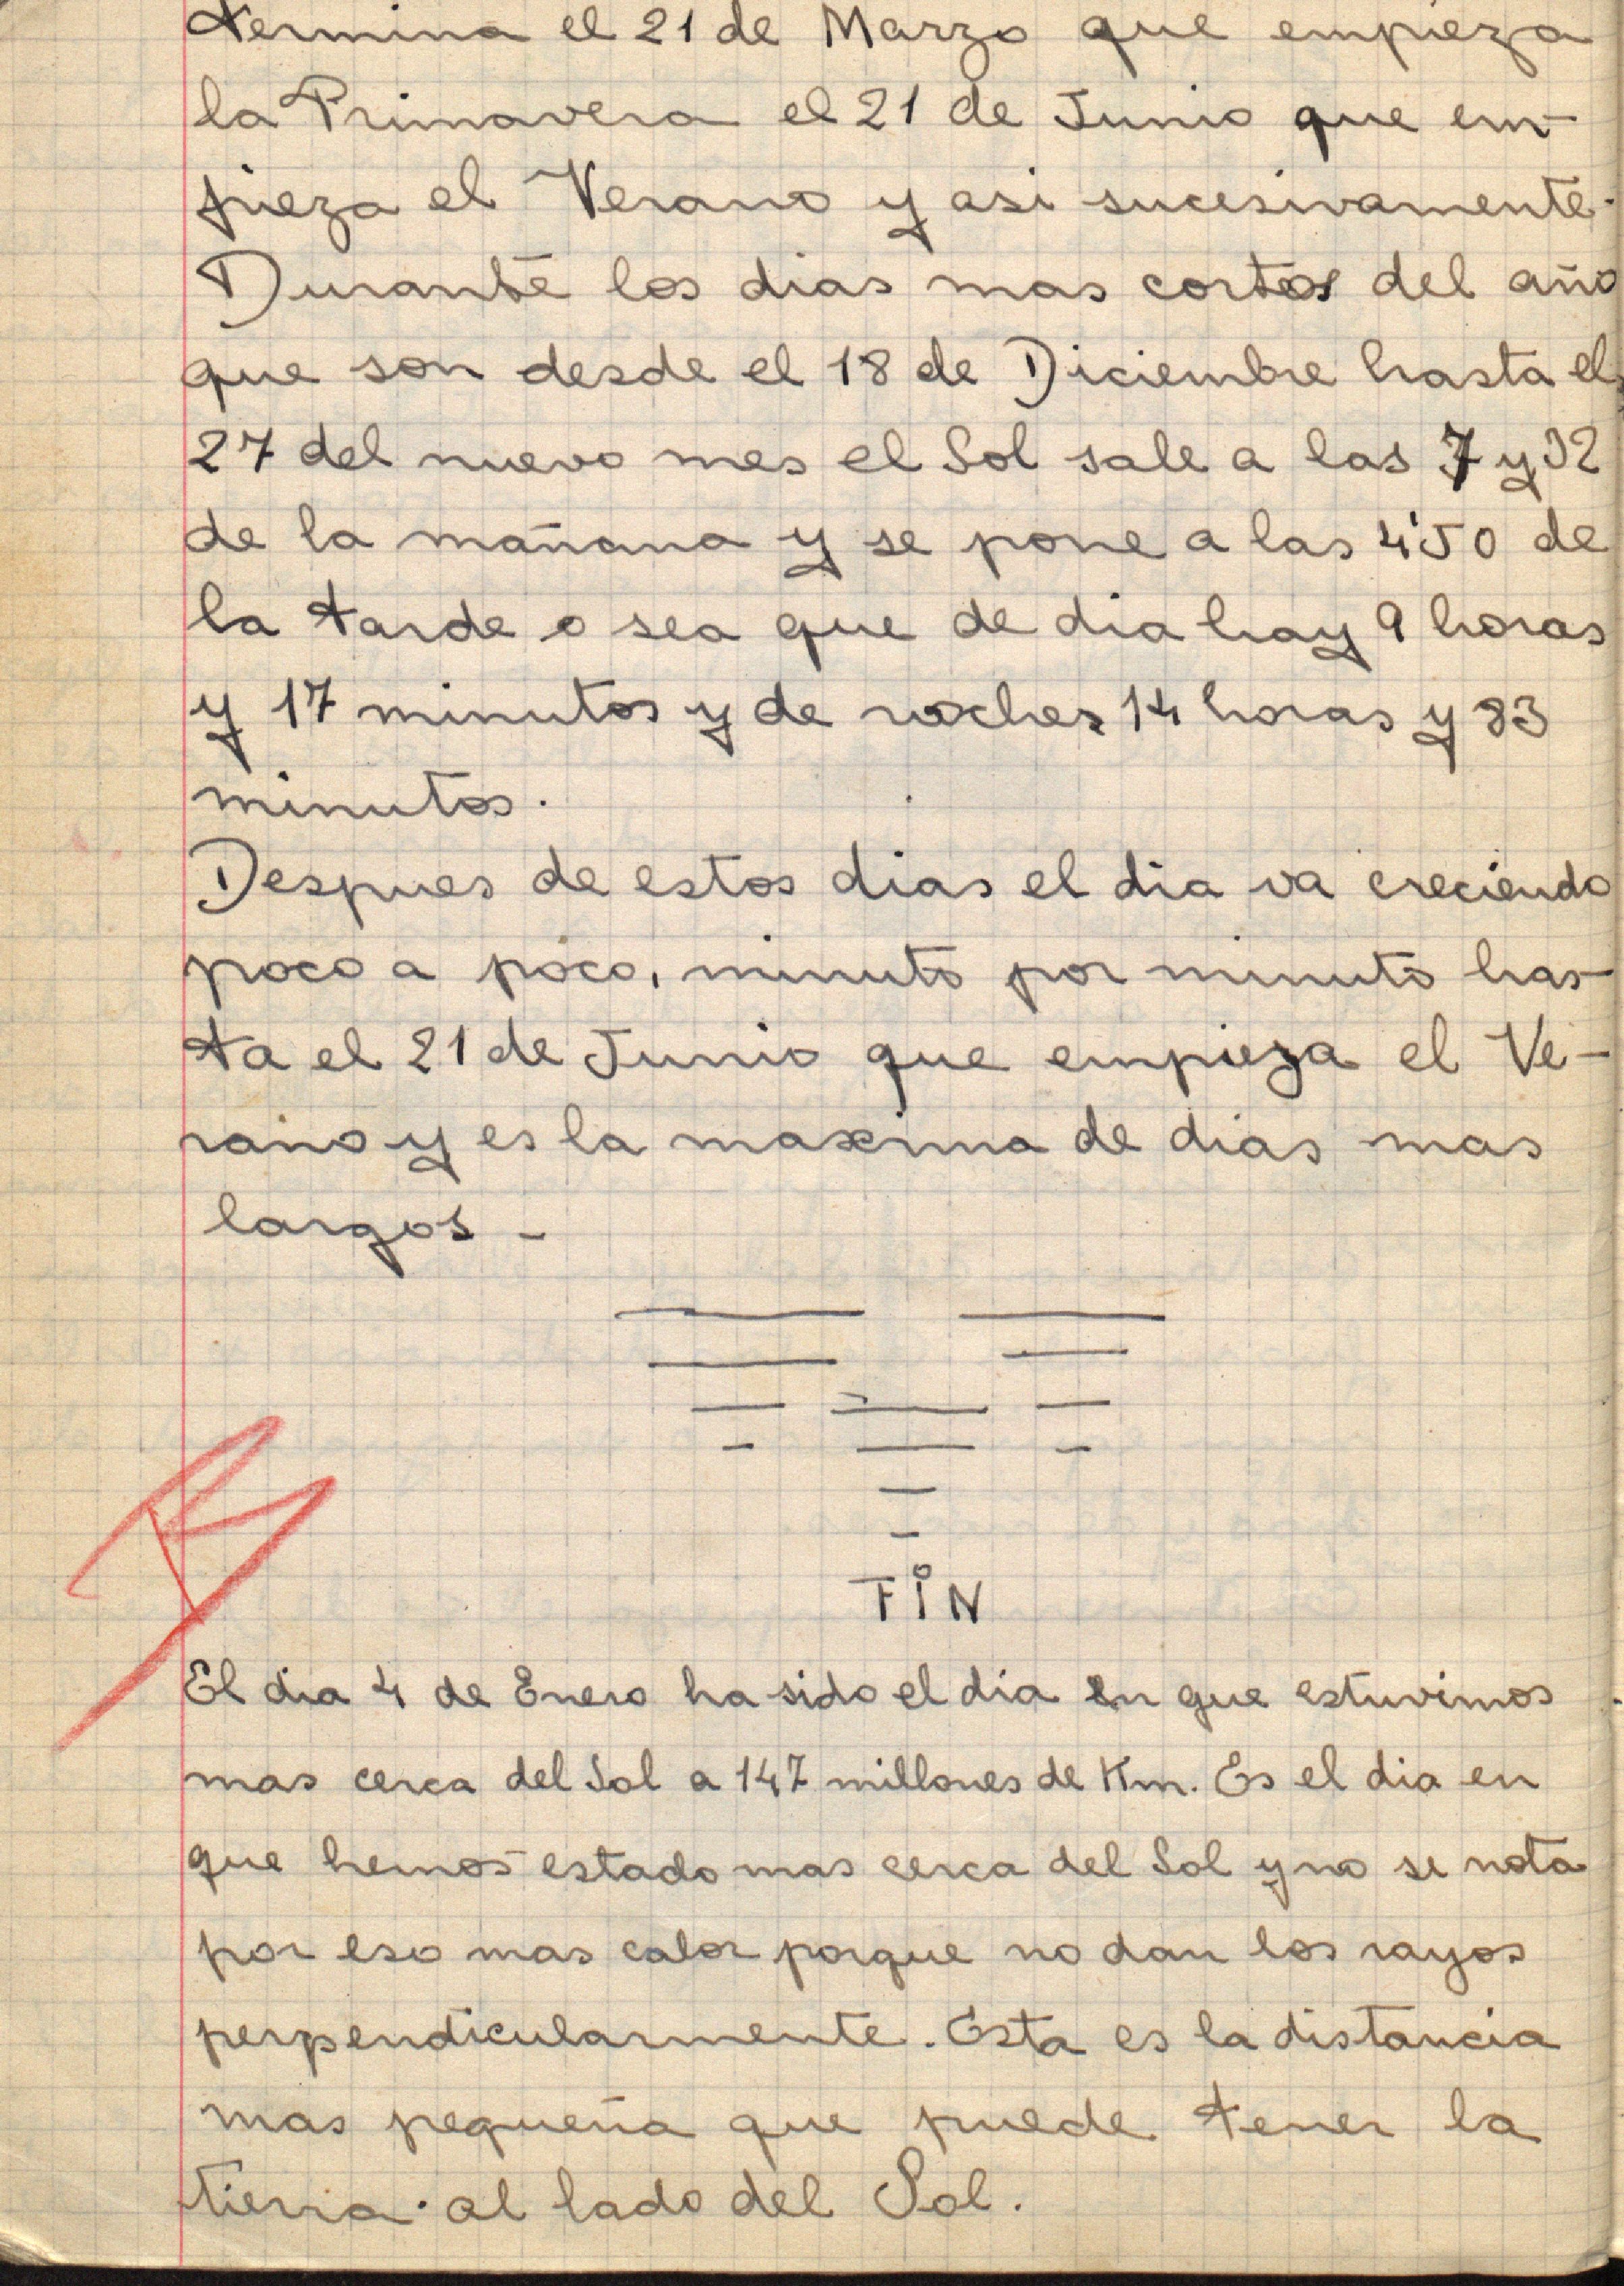 termina el 21 de Marzo que empieza
la Primavera el 21 de Junio que em-
pieza el Verano y asi sucesivamente.
Durante los dias mas cortos del año
que son desde el 18 de Diciembre hasta el
27 del nuevo mes el Sol sale a las 7 y 32
de la mañana y se pone a las 4'50 de
la tarde o sea que de dia hay 9 horas
y 17 minutos y de noches 14 horas y 83
minutos.
Despues de estos dias el dia va creciendo
poco a poco, minuto por minuto has-
ta el 21 de Junio que empieza el Ve-
rano y es la maxima de dias mas
largos -
FIN
El dia 4 de Enero ha sido el dia en que estuvimos
mas cerca del Sol a 147 millones de Km. Es el dia en
que hemos estado mas cerca del Sol y no se nota
por eso mas calor porque no dan los rayos
perpendicularmente. Esta es la distancia
mas pequeña que puede tener la
tierra al lado del Sol.